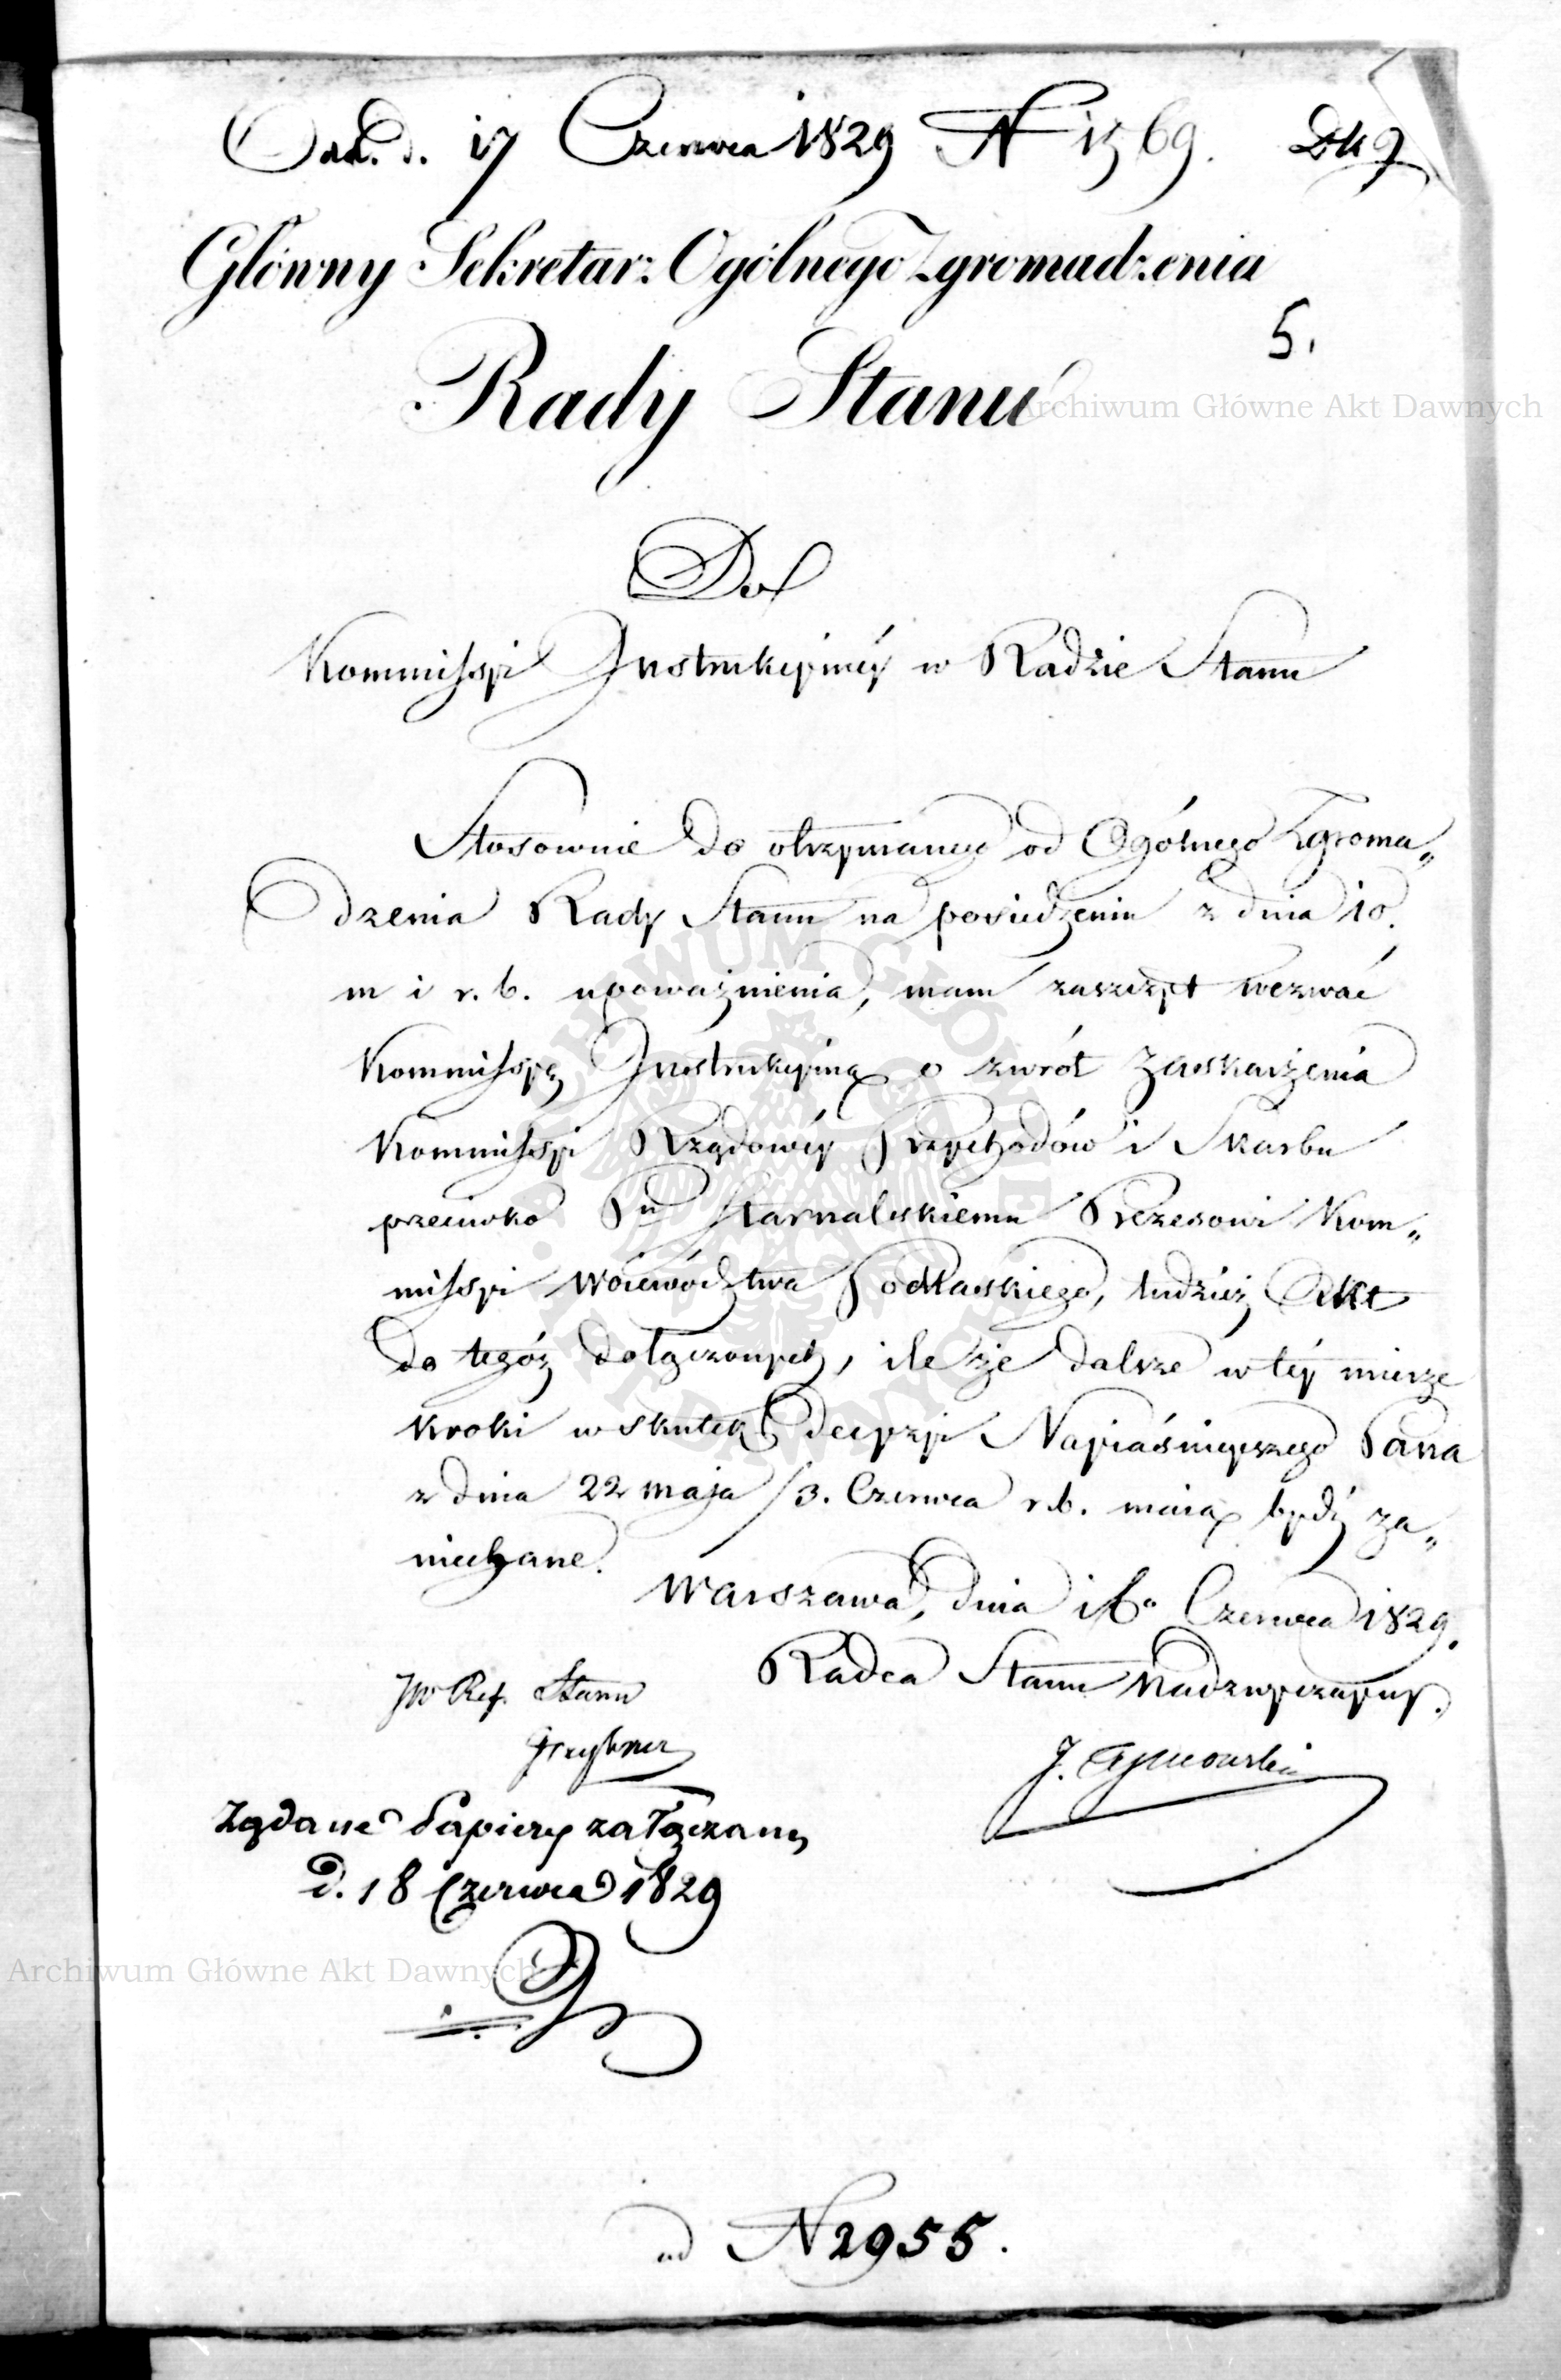 Odd. d. 17 Czerwca 1829 N 1569.
Główny Sekretarz Ogólnego Zgromadzenia
5.
Rady Stanu
Archiwum Główne Akt Dawnych
Do
Kommissyi Instrukcyiney w Radzie Stanu
Stosownie do otrzymanego od Ogólnego Zgroma„
dzenia Rady Stanu na posiedzeniu z dnia 10.
m i r. b. upoważnienia, mam zaszczyt wezwać
Kommissyę Instrukcyiną o zwrót Zaskarżenia
Kommissyi Rządowéy Przychodów i Skarbu
przeciwko Pu Starnalskiemu Prezesowi Kom„
missyi Woiewództwa Podlaskiego, tudzież Akt
do tegóż dołączonych, ile że dalsze w téy mierze
kroki w skutek decyzyi Nayiaśnieyszego Pana
z dnia 22 maja / 3. Czerwca r. b. maią bydź za„
niechane.
Warszawa, dnia 16o Czerwca 1829.
Radca Stanu Nadzwyczayny.
JW Ref. Stanu
J.
Zgdane Papiery załączam
d. 18 Czerwca 1829
Archiwum Główne Akt Dawnych
ad N 2955.